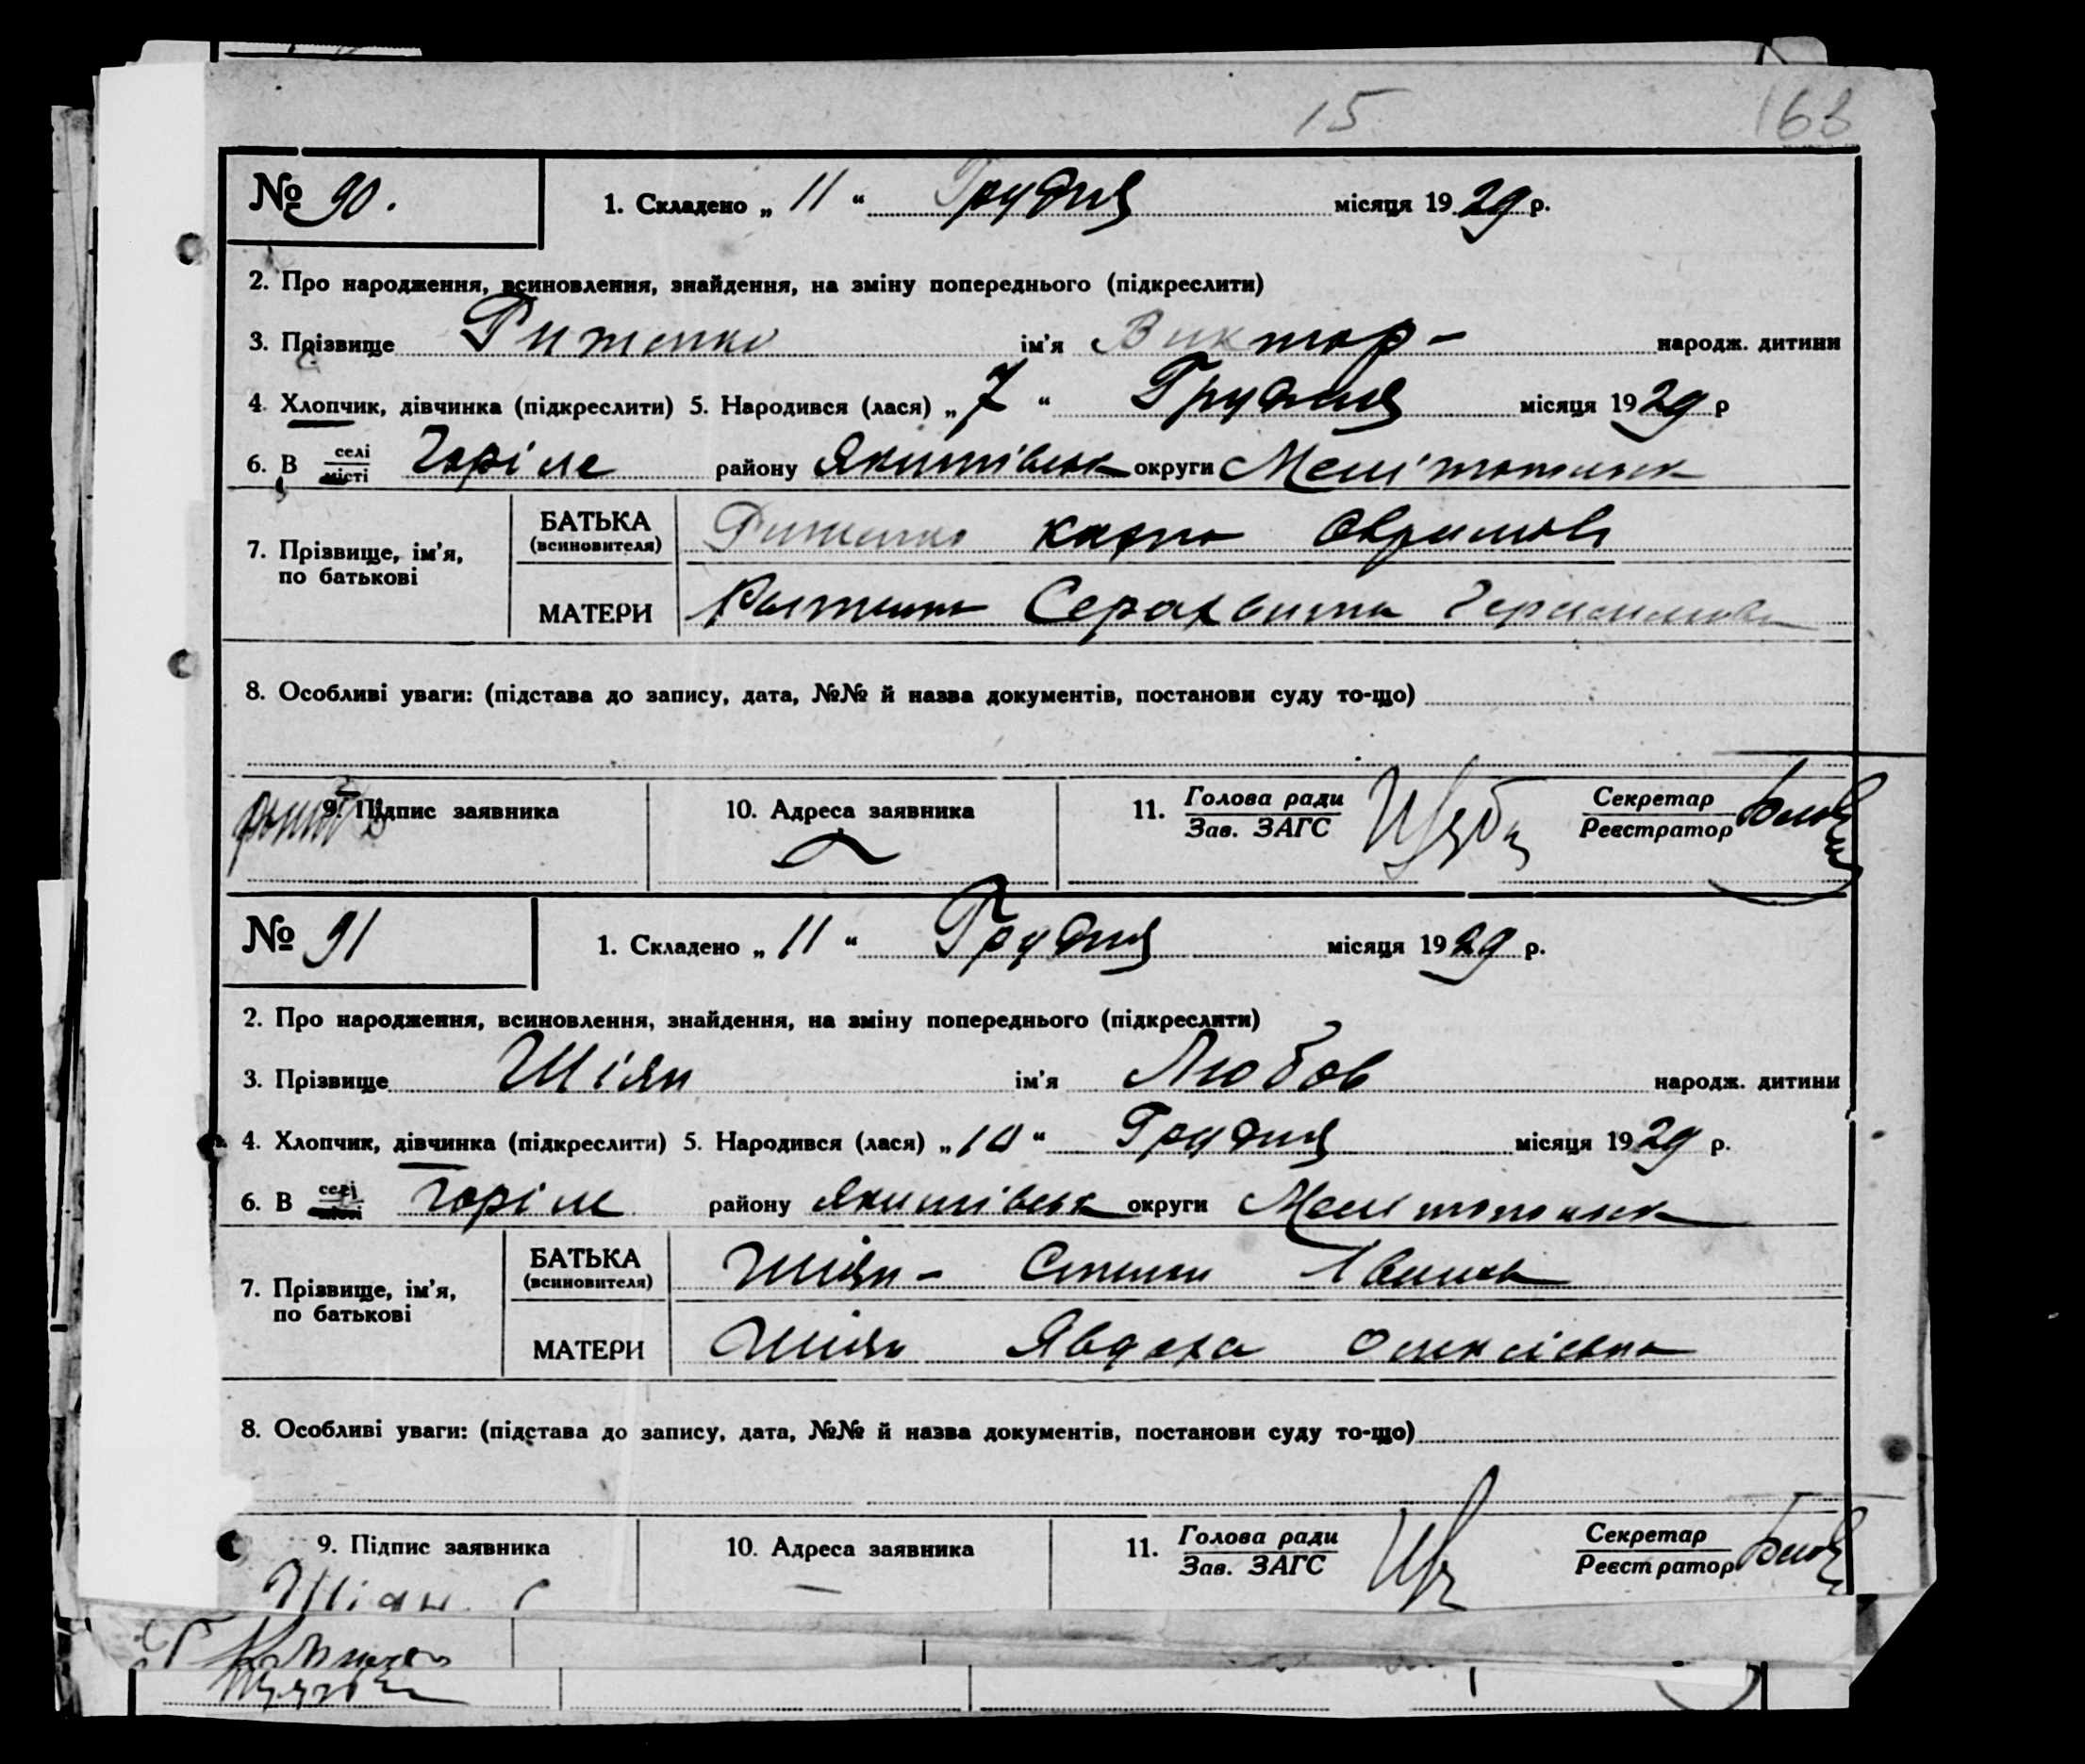 15 168
№ 90. 1. Складено „ 11 “ Грудня місяця 1929 р.
2. Про народження, всиновлення, знайдення, на зміну попереднього (підкреслити)
3. Прізвище Риженко ім'я Виктор - народж. дитини
4. Хлопчик, дівчинка (підкреслити) 5. Народився (лася) „ 7 “ Грудня місяця 1929 р
6. В селі місті Горіле району Якимівськ округи Мелітопольск
7. Прізвище, ім'я, по батькові БАТЬКА (всиновителя) Риженко Карпо
МАТЕРИ
8. Особливі уваги: (підстава до запису, дата, №№ й назва документів, постанови суду то-що)
9. Підпис заявника 10. Адреса заявника 11. Голова ради Зав. ЗАГС Секретар Реєстратор
№ 91 1. Складено „ 11 “ Грудня місяця 1929 р.
2. Про народження, всиновлення, знайдення, на зміну попереднього (підкреслити)
3. Прізвище Шіян ім'я Любов народж. дитини
4. Хлопчик, дівчинка (підкреслити) 5. Народився (лася) „ 10 “ Грудня місяця 1929 р.
6. В селі місті Горіле району Якимівськ округи Мелітопольск
7. Прізвище, ім'я, по батькові БАТЬКА (всиновителя) Шіян -
МАТЕРИ Шіян Явдоха Олексієвна
8. Особливі уваги: (підстава до запису, дата, №№ й назва документів, постанови суду то-що)
9. Підпис заявника 10. Адреса заявника 11. Голова ради Зав. ЗАГС Секретар Реєстратор
Шіян